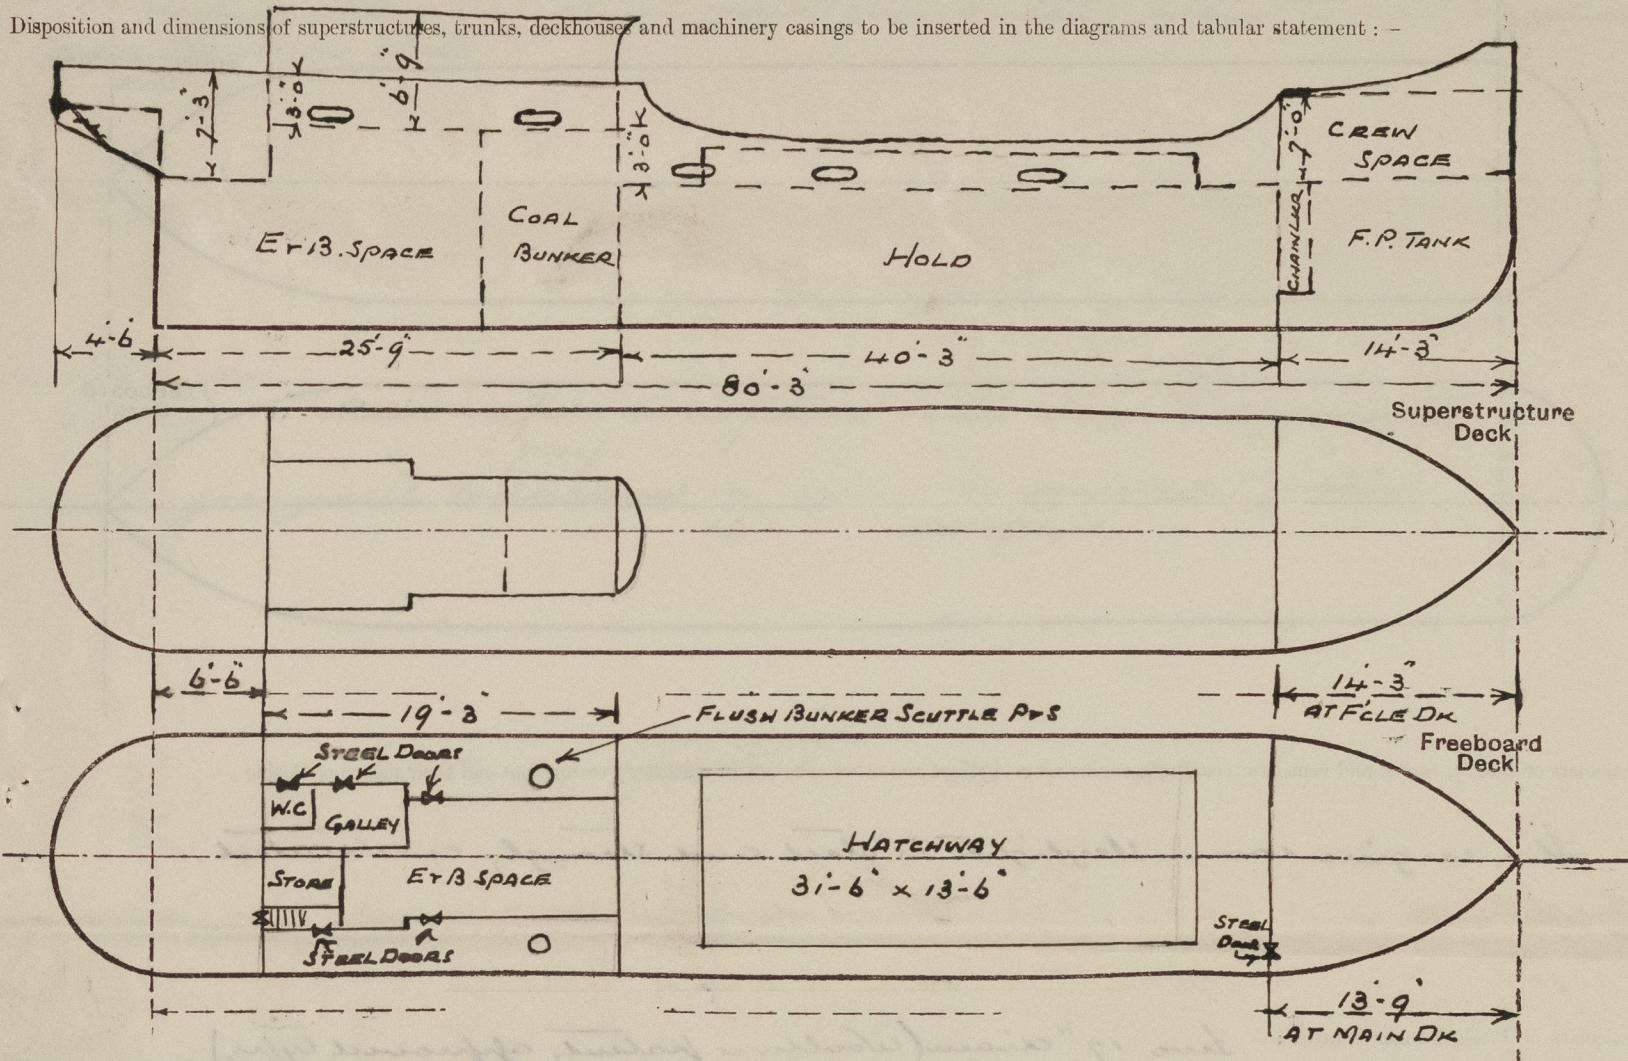 Disposition and dimensions of superstructures, trunks, deckhouses and machinery casings to be inserted in the diagrams and tabular statement : –
7'-3"
3'-0"
6'-9"
3'-0"
7'-0"
CREW
SPACE
COAL
BUNKER
E & B. SPACE
HOLD
CHAIN LKR
F.P. TANK
4'-6
25'-9"
40'-3"
14'-3"
80'-3"
Superstructure
Deck
6'-6"
14'-3"
AT F'CLE DK
19'-3"
FLUSH BUNKER SCUTTLE P & S
Freeboard
Deck
STEEL DOORS
W.C
GALLEY
STORE
E & B SPACE
HATCHWAY
31'-6" x 13'-6"
STEEL
DOOR
STEEL DOORS
13'-9"
AT MAIN DK